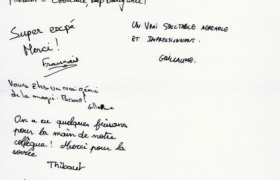 Super expé
Merci!
Francois
UN VRAI SPECTACLE AGREABLE
ET IMPRESSIONNANT.
GUILLAUME.
Vous êtes un vrai génie
de la magie. Bravo!
On a eu quelques frissons
pour la main de notre
collègue! Merci pour la
soirée
Thibaut